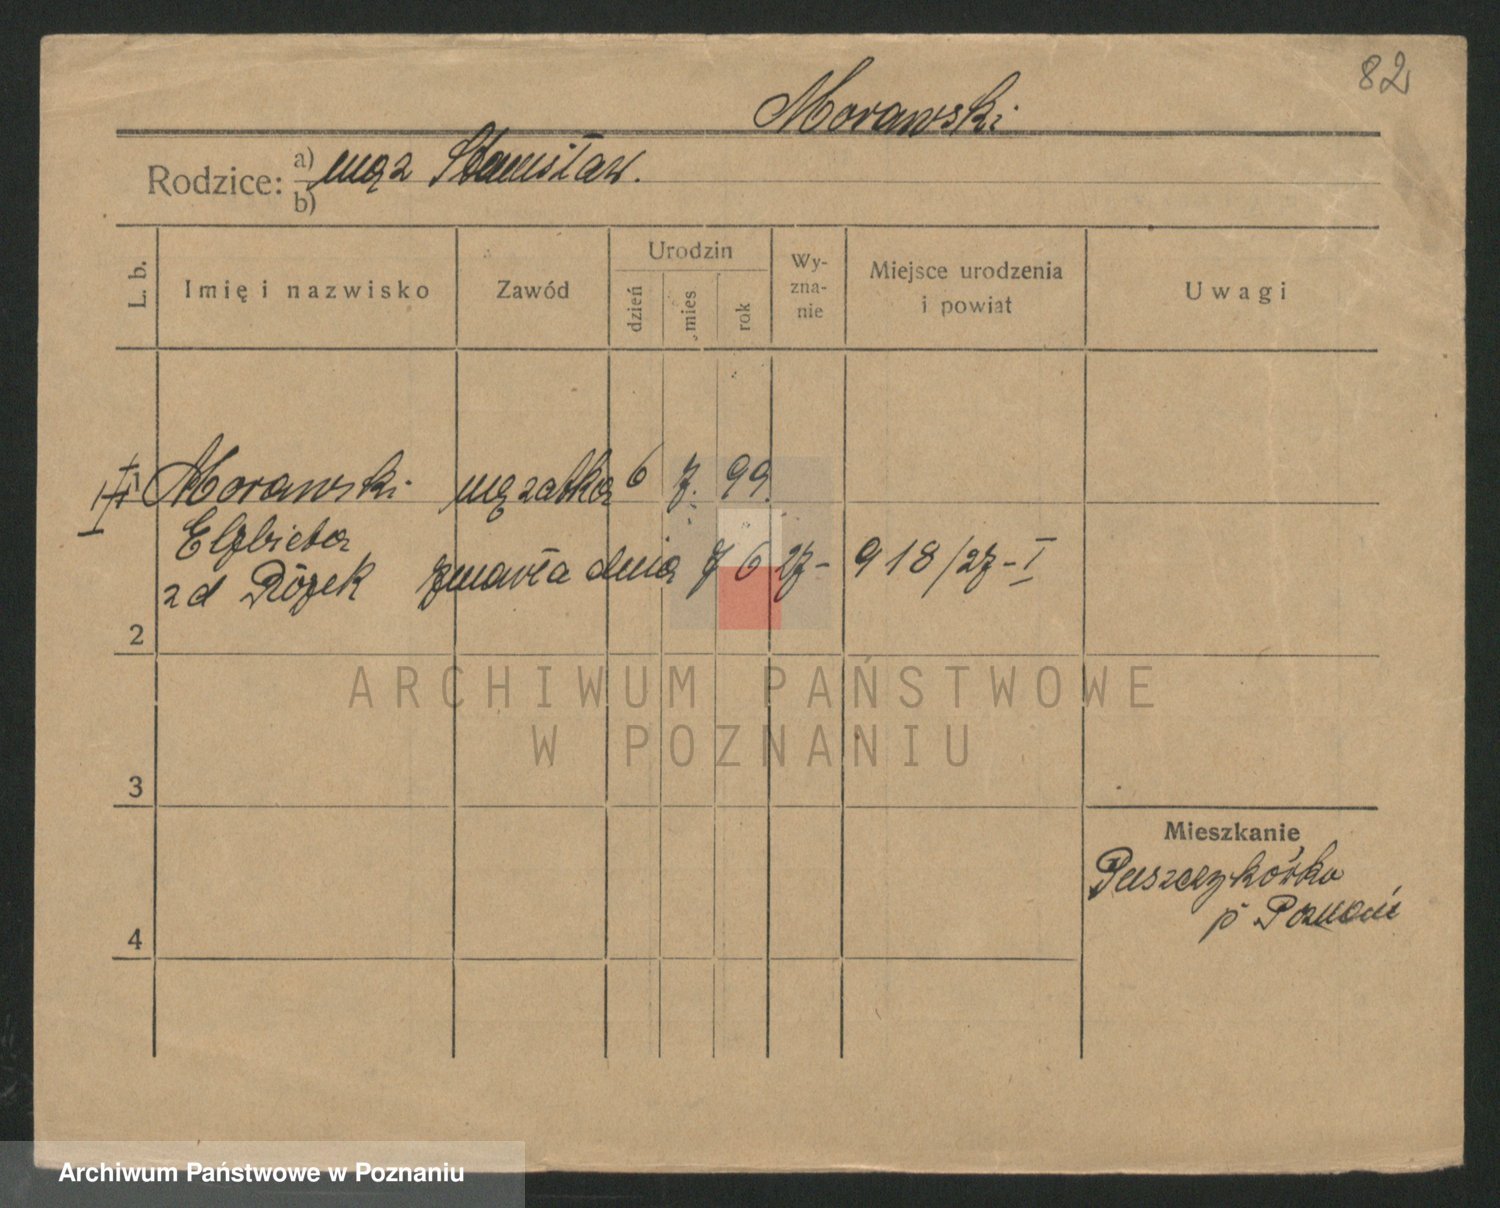 82
Morawski
Rodzice: a) mąż Stanisław.
b)
L. b.
Imię i nazwisko
Zawód
Urodzin
dzień
mies
rok
Wy-
zna-
nie
Miejsce urodzenia
i powiat
Uwagi
Morawski mężatka 6 7. 99.
Elżbieta
zd Różek zmarła dnia 7 6 27 - 918/27 - I
2
3
4
Mieszkanie
Puszczykówko
p Poznań
ARCHIWUM PAŃSTWOWE
W POZNANIU
Archiwum Państwowe w Poznaniu